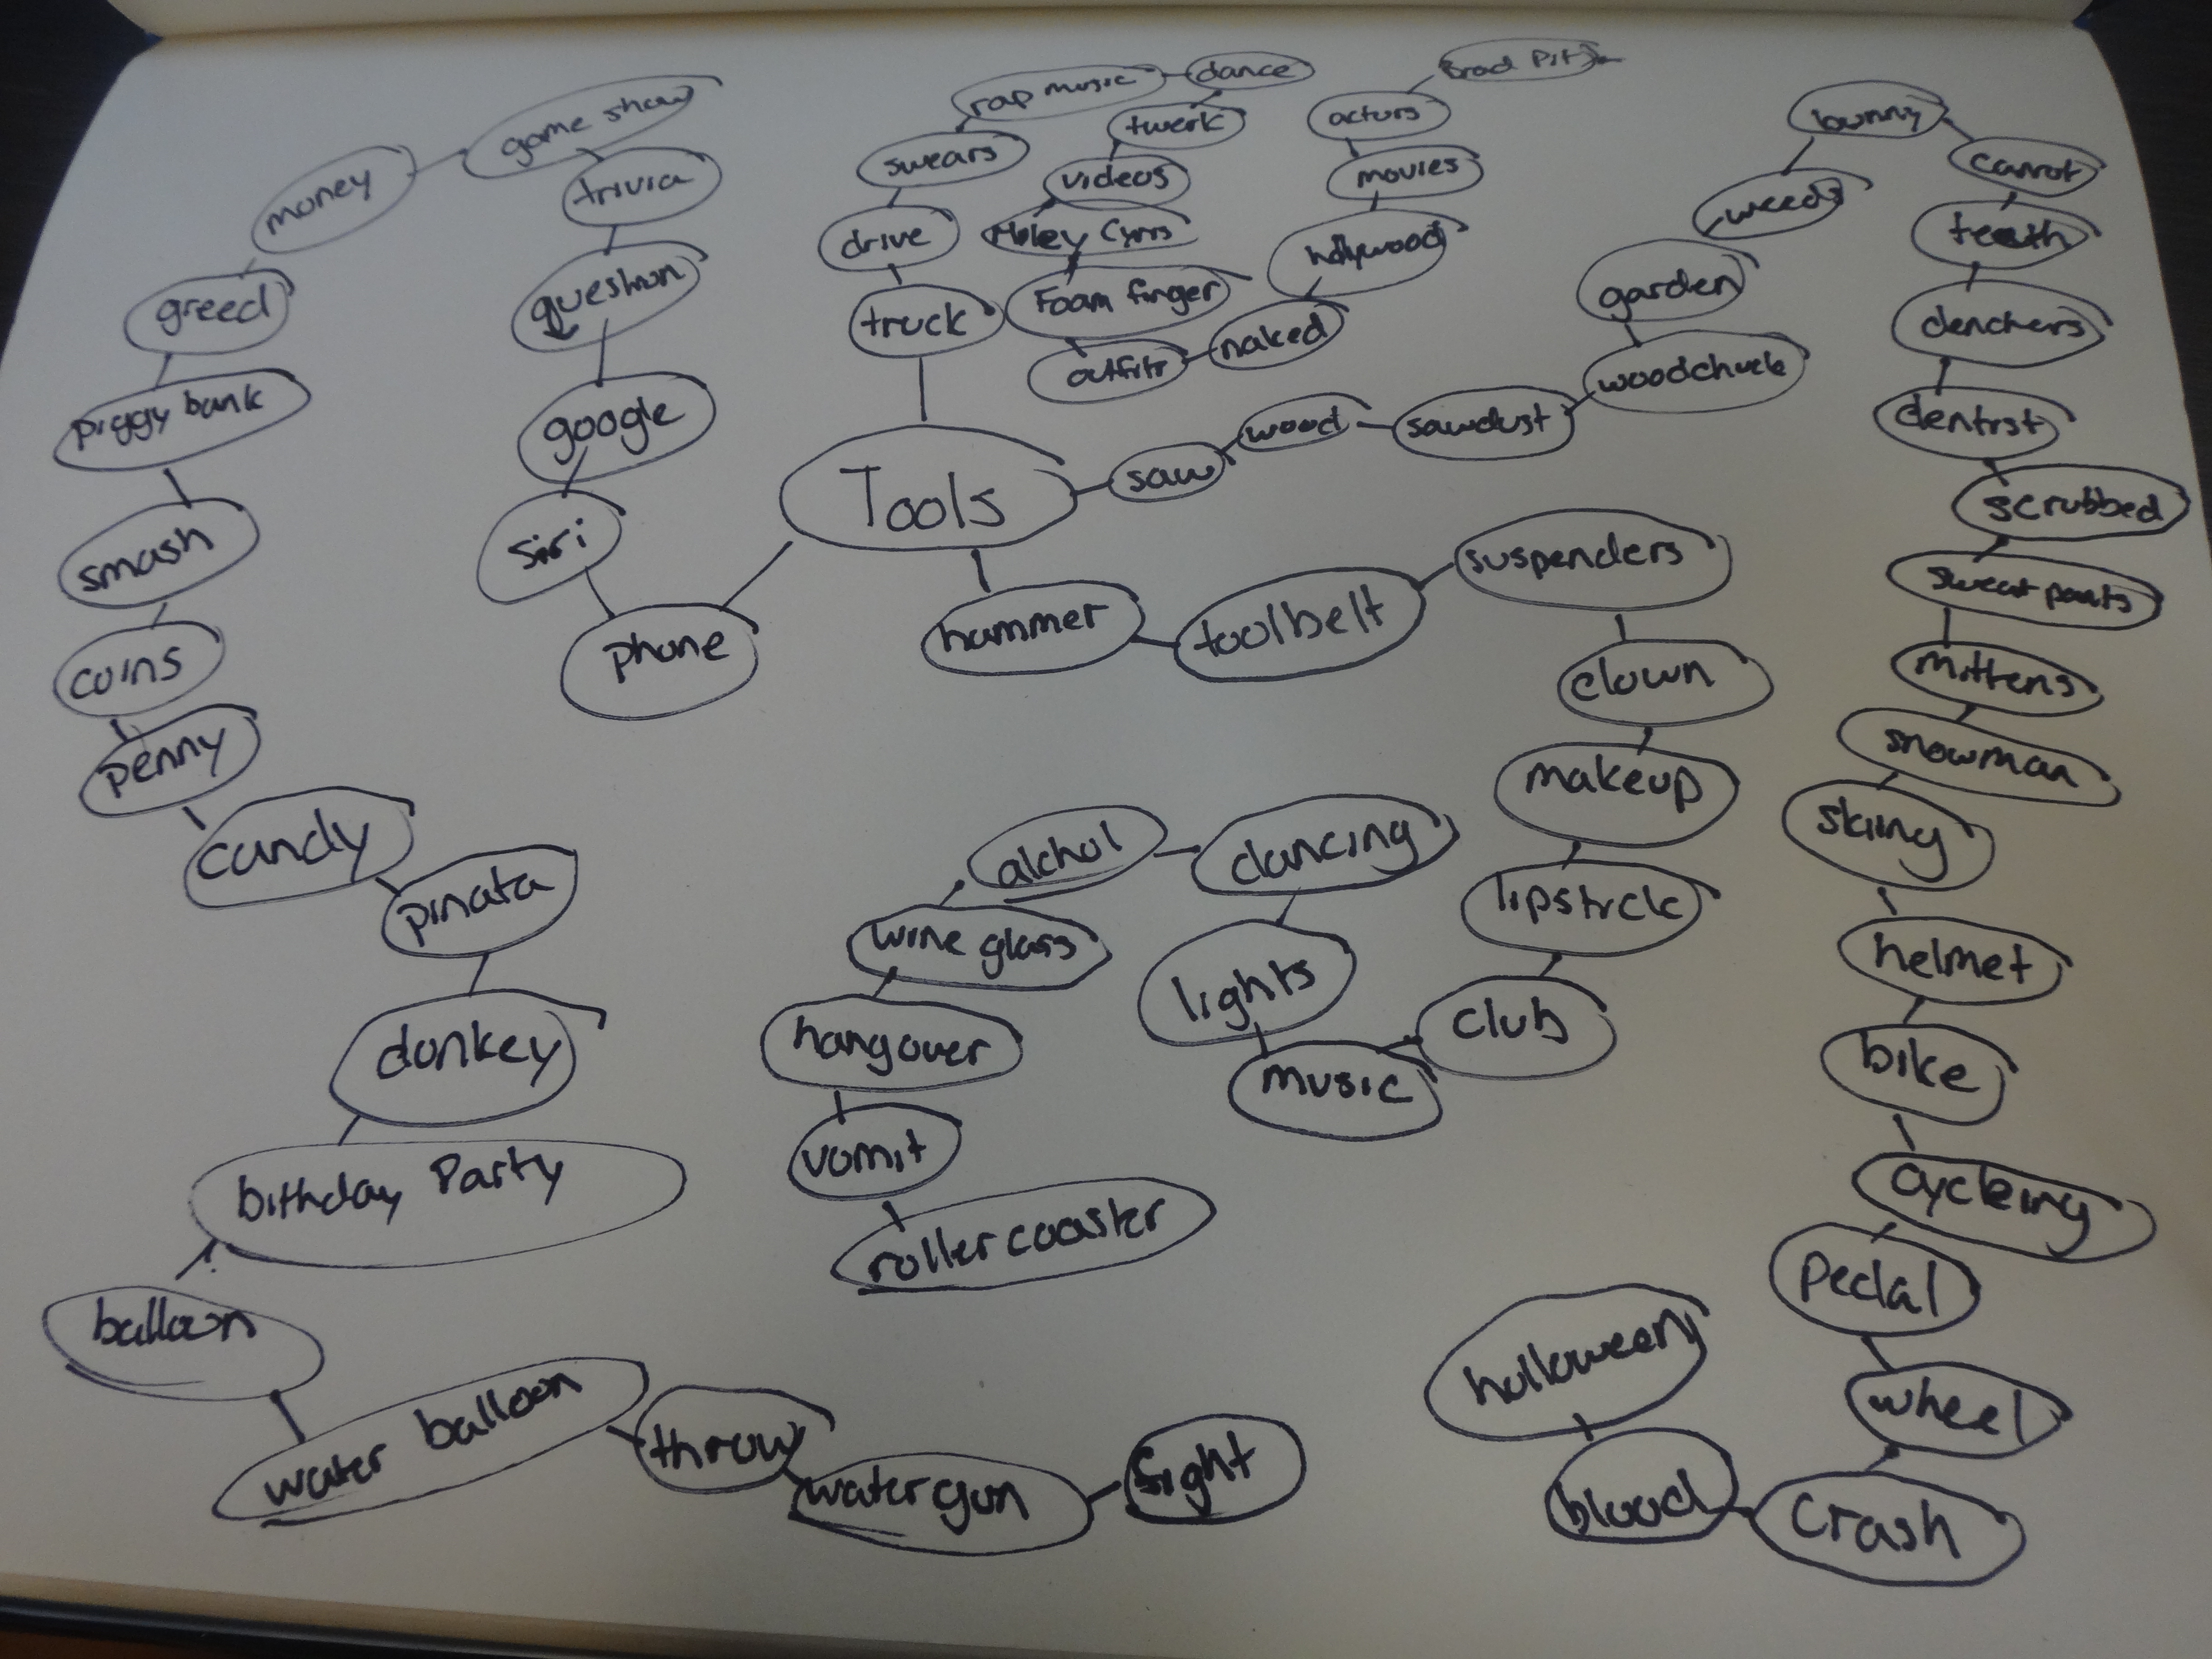 Tools
truck
drive
swears
rap music
dance
twerk
videos
Miley Cyrus
Foam finger
outfits
naked
hollywood
movies
actors
Brad Pitt
saw
wood
sawdust
woodchuck
garden
weeds
bunny
carrot
teeth
denchers
dentist
scrubbed
sweat pants
mittens
snowman
skiing
helmet
bike
cycleing
Pedal
wheel
Crash
blood
holloween
hammer
toolbelt
suspenders
clown
makeup
lipstick
club
music
lights
dancing
alchol
wine glass
hangover
vomit
roller coaster
phone
Siri
google
question
trivia
game show
money
greed
piggy bank
smash
coins
penny
candy
pinata
donkey
birthday Party
balloon
water balloon
throw
water gun
fight